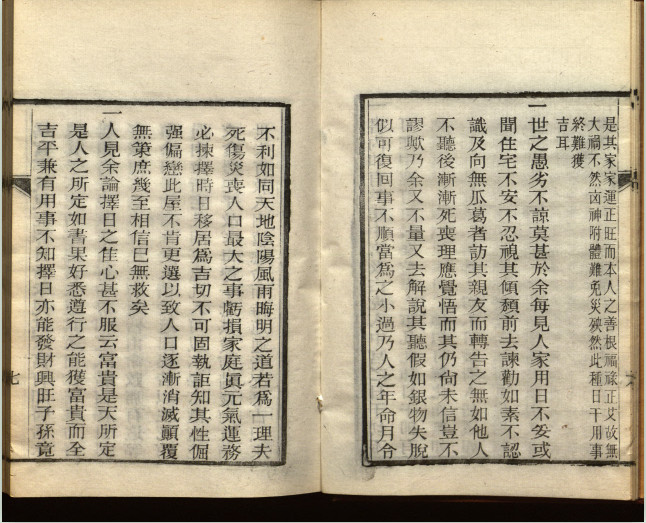 是其家家運正旺而本人之善根福祿正艾故無
大禍不然凶神附體難免災殃然此種日干用事
終難獲
吉耳
一世之愚劣不諒莫甚於余每見人家用日不妥或
聞住宅不安不忍視其傾頽前去諫勸如素不認
識及向無瓜葛者訪其親友而轉告之無如他人
不聽後漸漸死喪理應覺悟而其仍尙未信豈不
謬歟乃余又不量又去解說其聽假如銀物失脫
似可復回事不順當爲之小過乃人之年命月令
不利如同天地陰陽風雨晦明之道若爲一理夫
死傷災喪人口最大之事虧損家庭眞元氣運務
必揀擇時日移居爲吉切不可固執詎知其性倔
强偏戀此屋不肯更選以致人口逐漸消滅顚覆
無策庶幾至相信巳無救矣
一人見余論擇日之佳心甚不服云富貴是天所定
是人之所定如書果好悉遵行之能獲富貴而全
吉平兼有用事不知擇日亦能發財興旺子孫竟
七